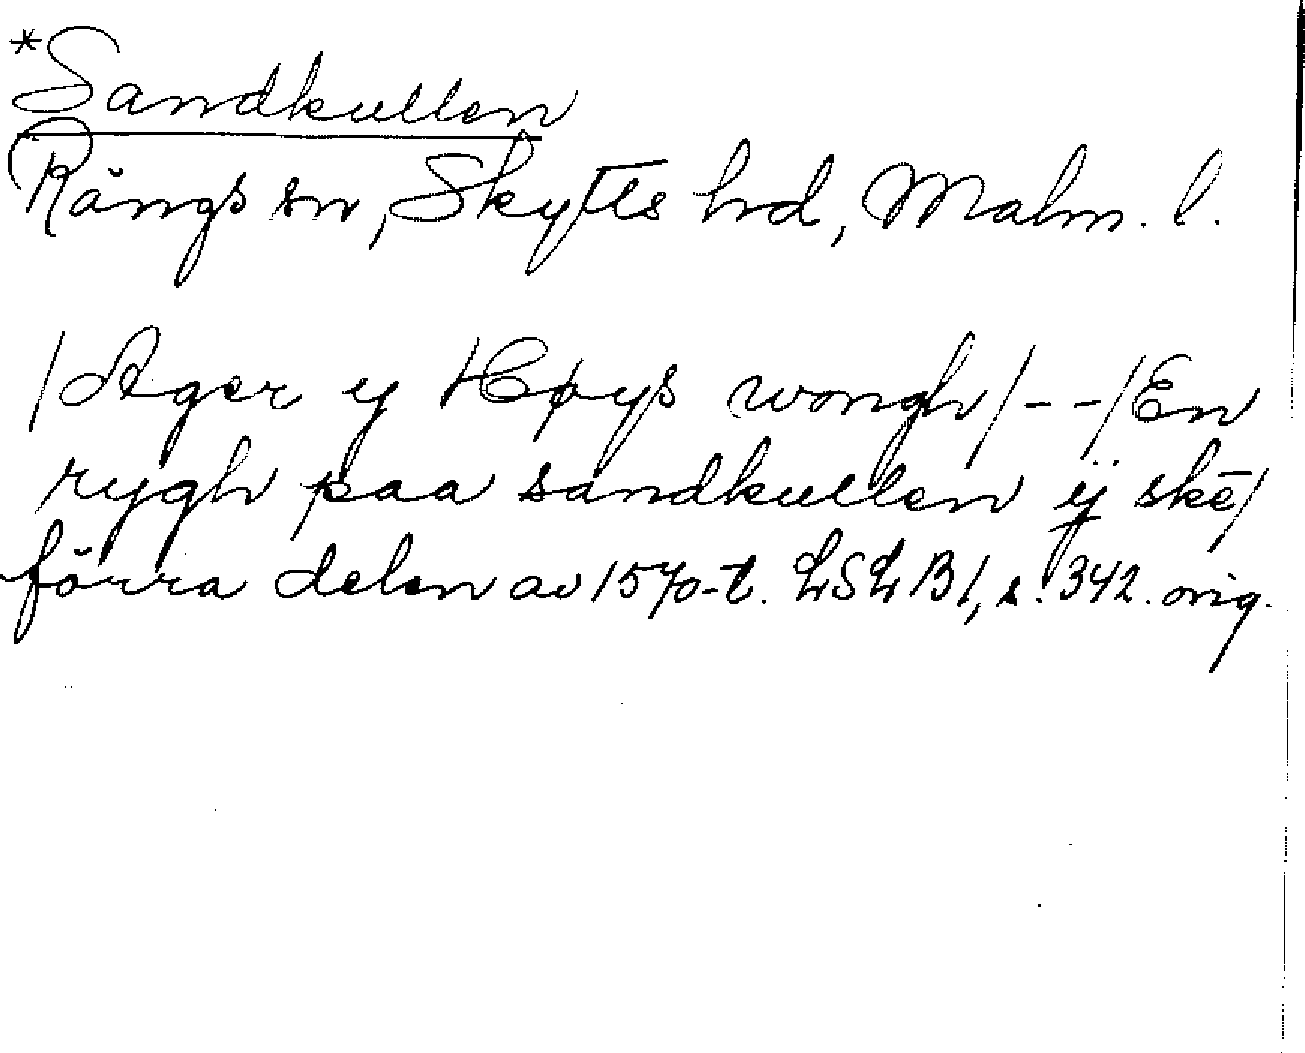 *Sandkullen
Rängs sn, Skytts hd, Malm. l.
/Ager y Høys wongh/--/En
rygh paa sandkullen ÿ skē/
förra delen av 1570-t. LSLB1, s. 342. orig.